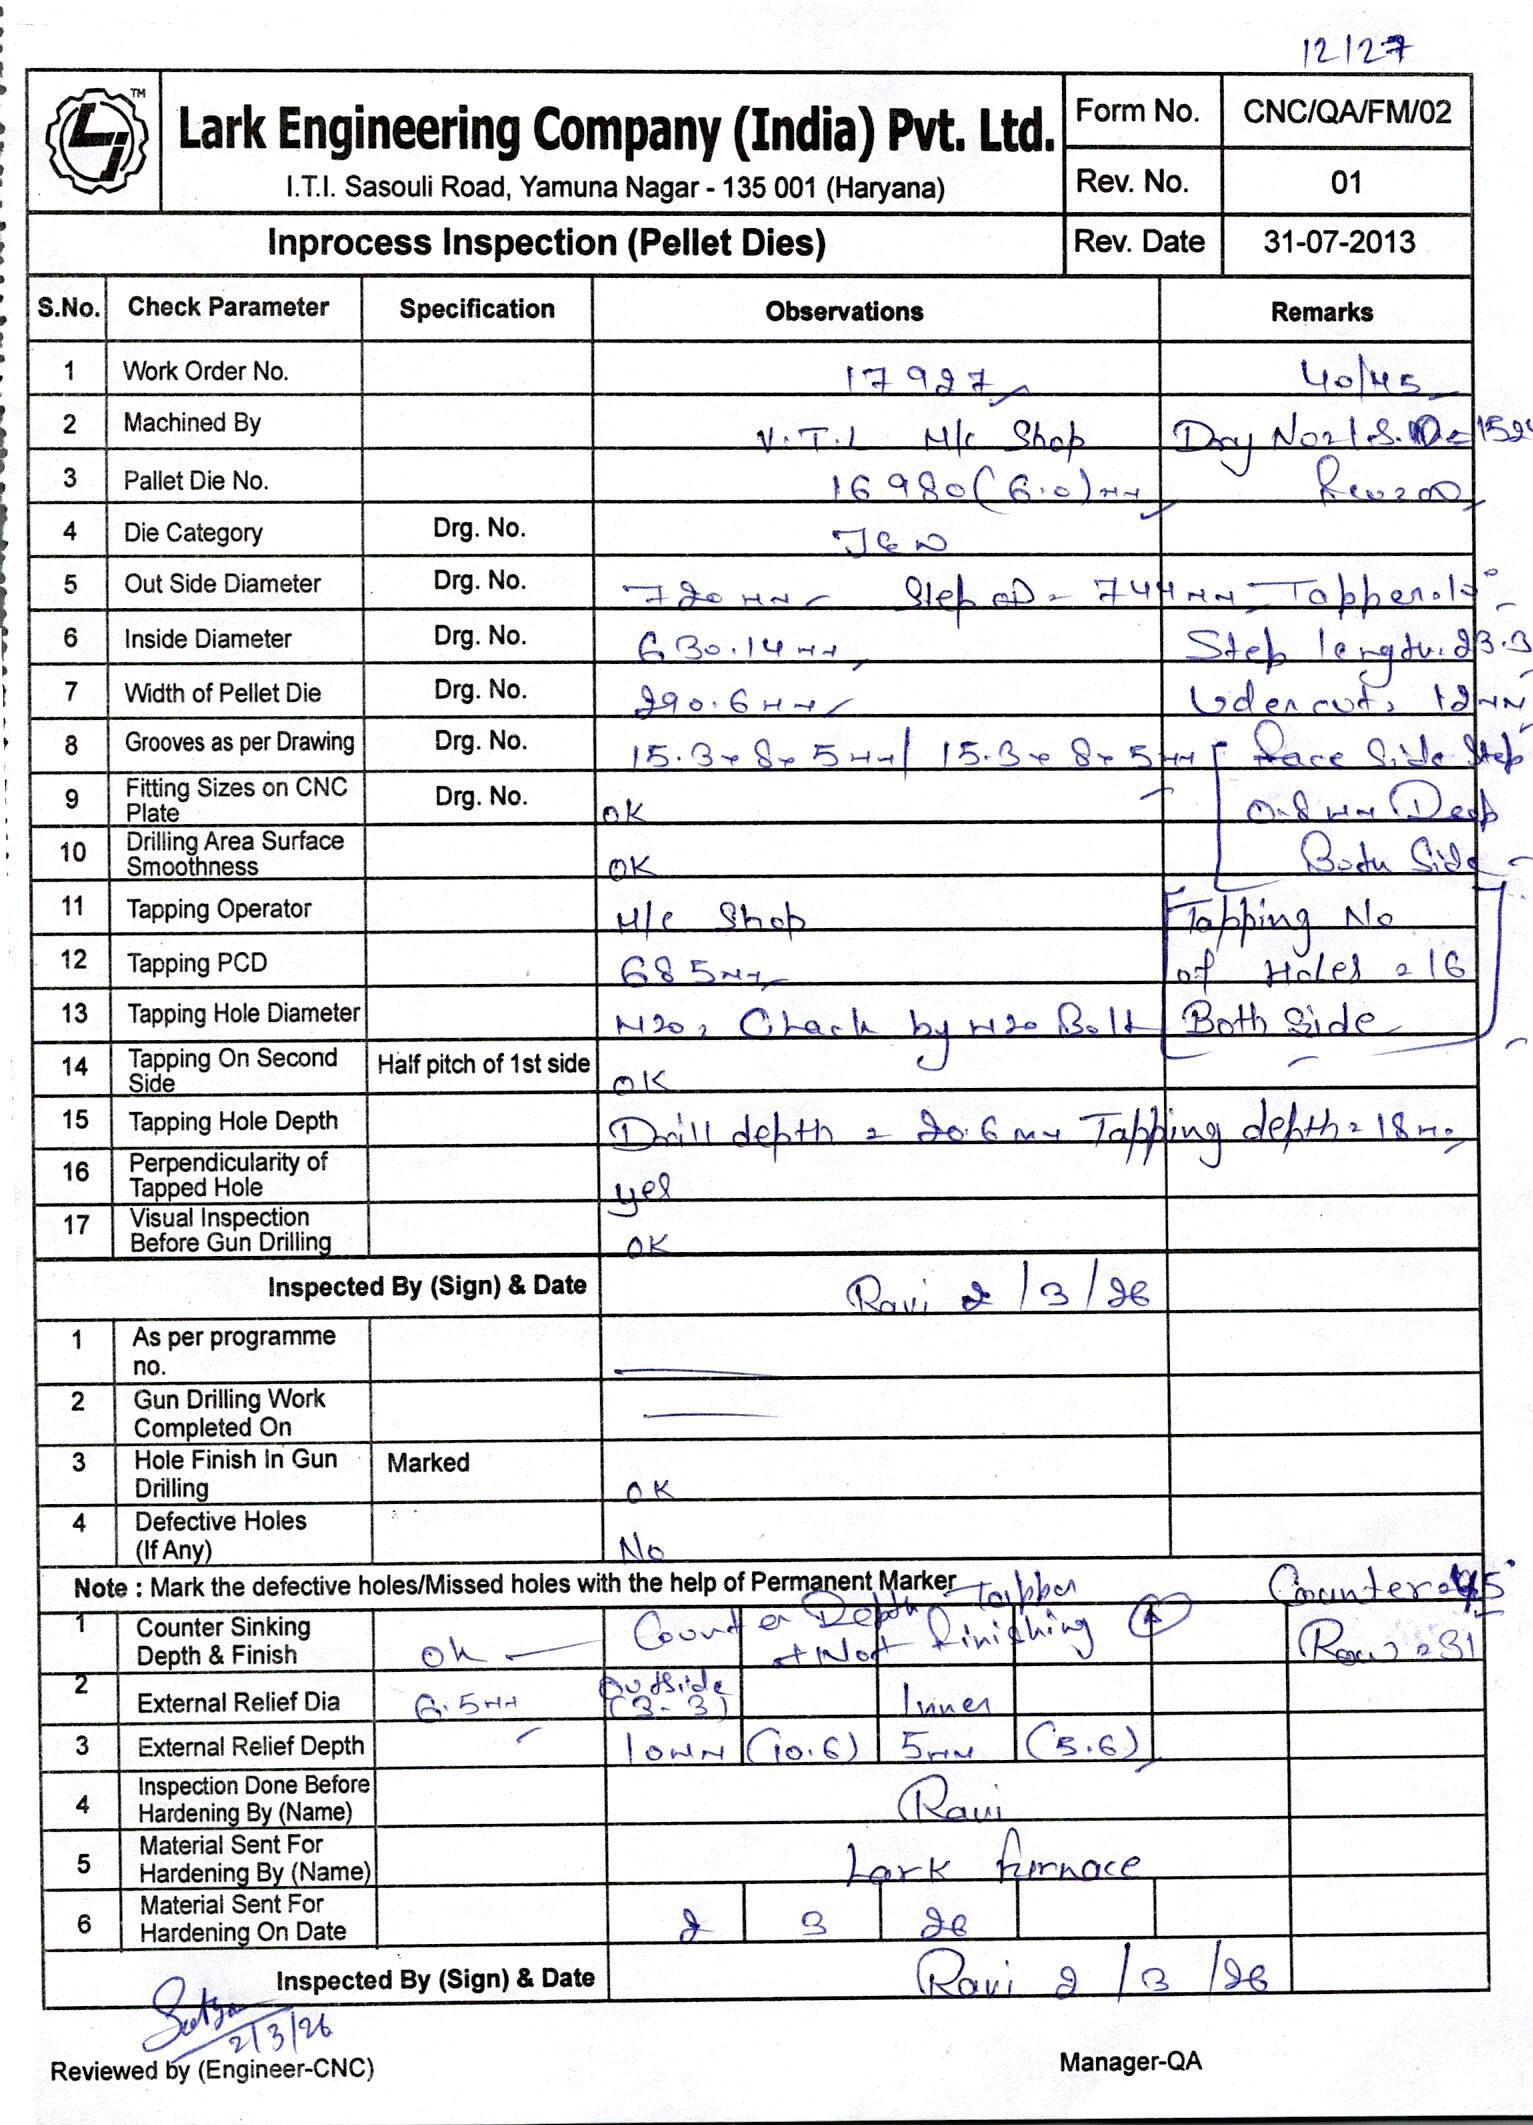 12/27
TM
Lark Engineering Company (India) Pvt. Ltd.
I.T.I. Sasouli Road, Yamuna Nagar - 135 001 (Haryana)
Form No. CNC/QA/FM/02
Rev. No. 01
Inprocess Inspection (Pellet Dies) Rev. Date 31-07-2013
S.No. Check Parameter Specification Observations Remarks
1 Work Order No. 17927 40/45
2 Machined By V.T.L M/c Shop
3 Pallet Die No. 16980 (6.0)mm
4 Die Category Drg. No.
5 Out Side Diameter Drg. No. 720 mm Step OD = 744mm
6 Inside Diameter Drg. No. 630.14mm Step length = 23.3
7 Width of Pellet Die Drg. No. 290.6mm Udercut = 12mm
8 Grooves as per Drawing Drg. No. 15.3x8x5mm / 15.3x8x5mm Face Side Step
9 Fitting Sizes on CNC Plate Drg. No. OK 0.8mm Deep
10 Drilling Area Surface Smoothness OK Both Side
11 Tapping Operator M/c Shop Tapping No
12 Tapping PCD 685mm of Holes = 16
13 Tapping Hole Diameter M20, Chack by M20 Bolt Both Side
14 Tapping On Second Side Half pitch of 1st side OK
15 Tapping Hole Depth Drill depth = 20.6mm Tapping depth = 18mm
16 Perpendicularity of Tapped Hole yes
17 Visual Inspection Before Gun Drilling OK
Inspected By (Sign) & Date Ravi 2/3/26
1 As per programme no.
2 Gun Drilling Work Completed On
3 Hole Finish In Gun Drilling Marked OK
4 Defective Holes (If Any) No
Note : Mark the defective holes/Missed holes with the help of Permanent Marker
1 Counter Sinking Depth & Finish OK Counter Depth Tapper Not finishing Row = 31
2 External Relief Dia 6.5mm Outside (3-3) Inner
3 External Relief Depth 10mm (10.6) 5mm (5.6)
4 Inspection Done Before Hardening By (Name) Ravi
5 Material Sent For Hardening By (Name) Lark furnace
6 Material Sent For Hardening On Date 2 3 26
Inspected By (Sign) & Date Ravi 2/3/26
2/3/26
Reviewed by (Engineer-CNC) Manager-QA